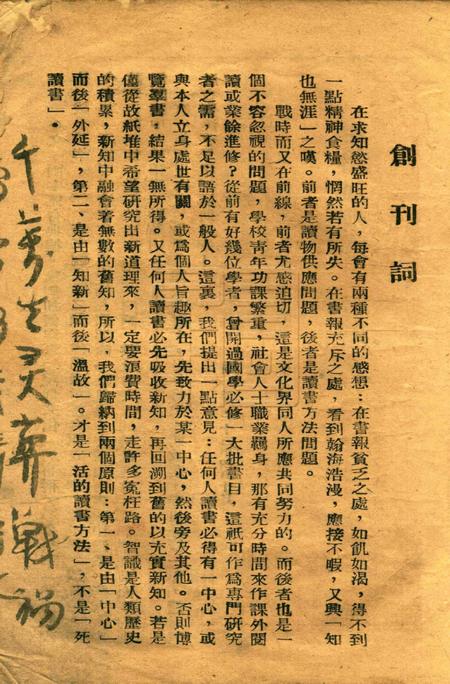 創刊詞
在求知慾盛旺的人，每會有兩種不同的感想：在書報貧乏之處，如飢如渴，得不到
一點精神食糧，惘然若有所失。在書報充斥之處，看到翰海浩漫，應接不暇，又興「知
也無涯」之嘆。前者是讀物供應問題，後者是讀書方法問題。
戰時而又在前線，前者尤感迫切，這是文化界同人所應共同努力的。而後者也是一
個不容忽視的問題，學校靑年功課繁重，社會人士職業纒身，那有充分時間來作課外閱
讀或業餘進修？從前有好幾位學者，曾開過國學必修一大批書目，這祇可作爲專門研究
者之需，不足以語於一般人。這裏，我們提出一點意見：任何人讀書必得有一中心，或
與本人立身處世有關，或爲個人旨趣所在，先致力於某一中心，然後旁及其他。否則博
覽羣書，結果一無所得。又任何人讀書必先吸收新知，再回溯到舊的以充實新知。若是
僅從故紙堆中希望研究出新道理來，一定要浪費時間，走許多寃枉路。智識是人類歷史
的積累，新知中融會着無數的舊知，所以，我們歸納到兩個原則：第一、是由「中心」
而後「外延」，第二、是由「知新」而後「溫故」。才是「活的讀書方法」，不是「死
讀書」。
千萬生灵葬戰禍